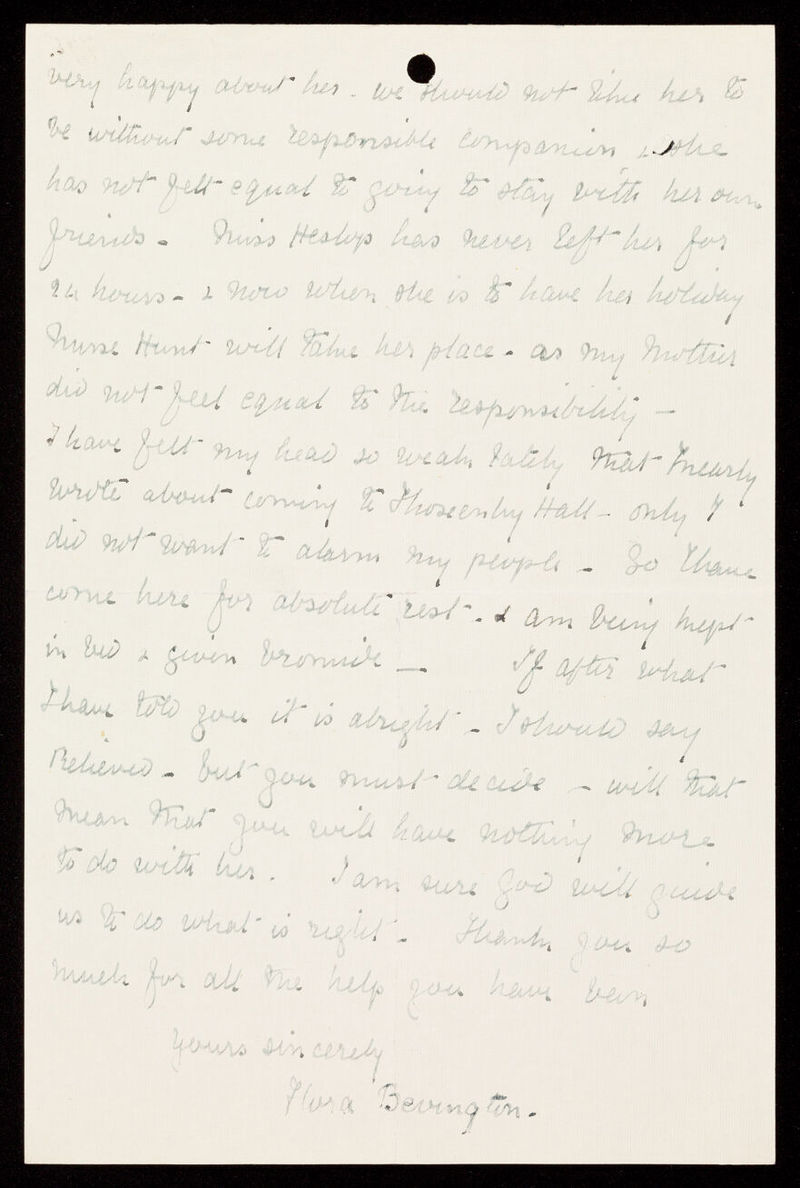 very happy about her. we should not like her to
be without some responsible companion & she
has not felt equal to going to stay with her own
friends - Miss Heslop has never left her for
24 hours - & now when she is to have her holiday
Nurse Hunt will take her place - as my Mother
did not feel equal to the responsibility -
I have felt my head so weak lately that I nearly
wrote about coming to Hall - only I
did not want to alarm my people - So I have
come here for absolute rest - & am being kept
in bed & given bromide - If after what
I have told you it is alright - I should say
Relieved - but you must decide - will that
mean that you will have nothing more
to do with her. I am sure God will guide
us to do what is right - Thank you so
much for all the help you have been
Yours sincerely
Flora Bevington.